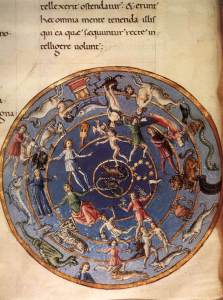 telle xerit ostendatur: & erunt
hec omnia mente tenenda illis
qui ea quæ sequuntur recte in
telligere uolunt;
no